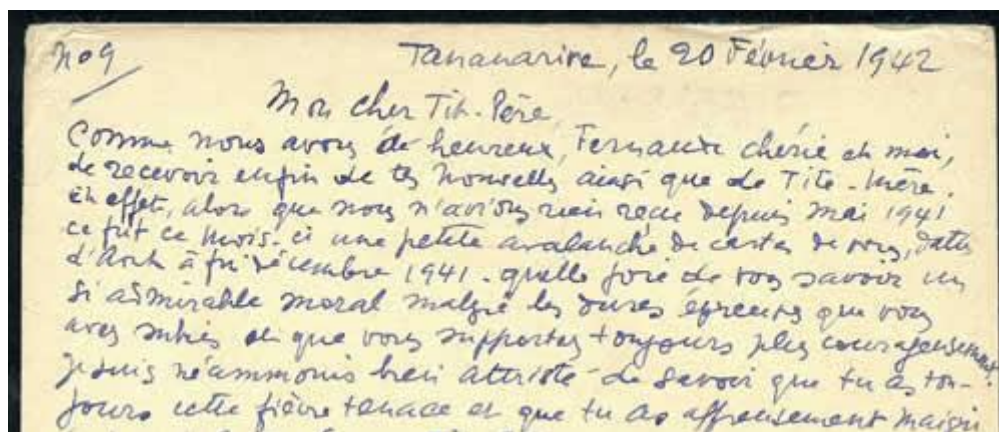 no 9
Tananarive, le 20 Février 1942
Mon cher Tit-Père,
Comme nous avons été heureux, Fernande chérie et moi,
de recevoir enfin de tes nouvelles ainsi que de Tite-Mère.
En effet, alors que nous n'avions rien reçu depuis mai 1941
ce fut ce mois-ci une petite avalanche de cartes de vous, datées
d'Août à fin décembre 1941. quelle joie de vous savoir un
si admirable moral malgré les dures épreuves que vous
avez subies et que vous supportez toujours plus courageusement.
Je suis néammoins bien attristé de savoir que tu as tou-
jours cette fièvre tenace et que tu as affreusement maigri